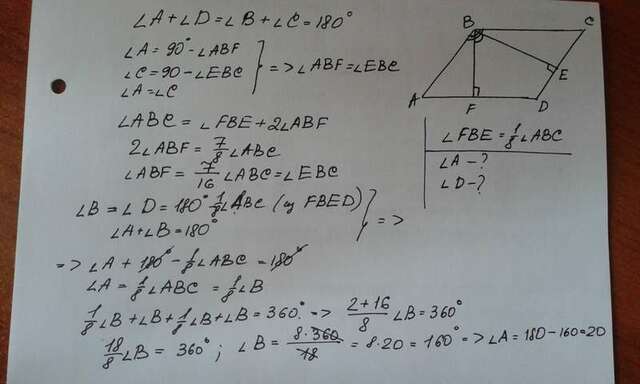 ∠A + ∠D = ∠B + ∠C = 180°
∠A = 90° - ∠ABF
∠C = 90 - ∠EBC
∠A = ∠C
=> ∠ABF = ∠EBC
∠ABC = ∠FBE + 2∠ABF
2∠ABF = 7/8 ∠ABC
∠ABF = 7/16 ∠ABC = ∠EBC
∠B = ∠D = 180° 1/8 ∠ABC (из FBED)
∠A + ∠B = 180°
=>
=> ∠A + 180° - 1/8 ∠ABC = 180°
∠A = 1/8 ∠ABC = 1/8 ∠B
1/8 ∠B + ∠B + 1/8 ∠B + ∠B = 360° => 2+16/8 ∠B = 360°
18/8 ∠B = 360° ; ∠B = 8·360/18 = 8·20 = 160° => ∠A = 180 - 160 = 20
B C
E
A F D
∠FBE = 1/8 ∠ABC
∠A - ?
∠D - ?